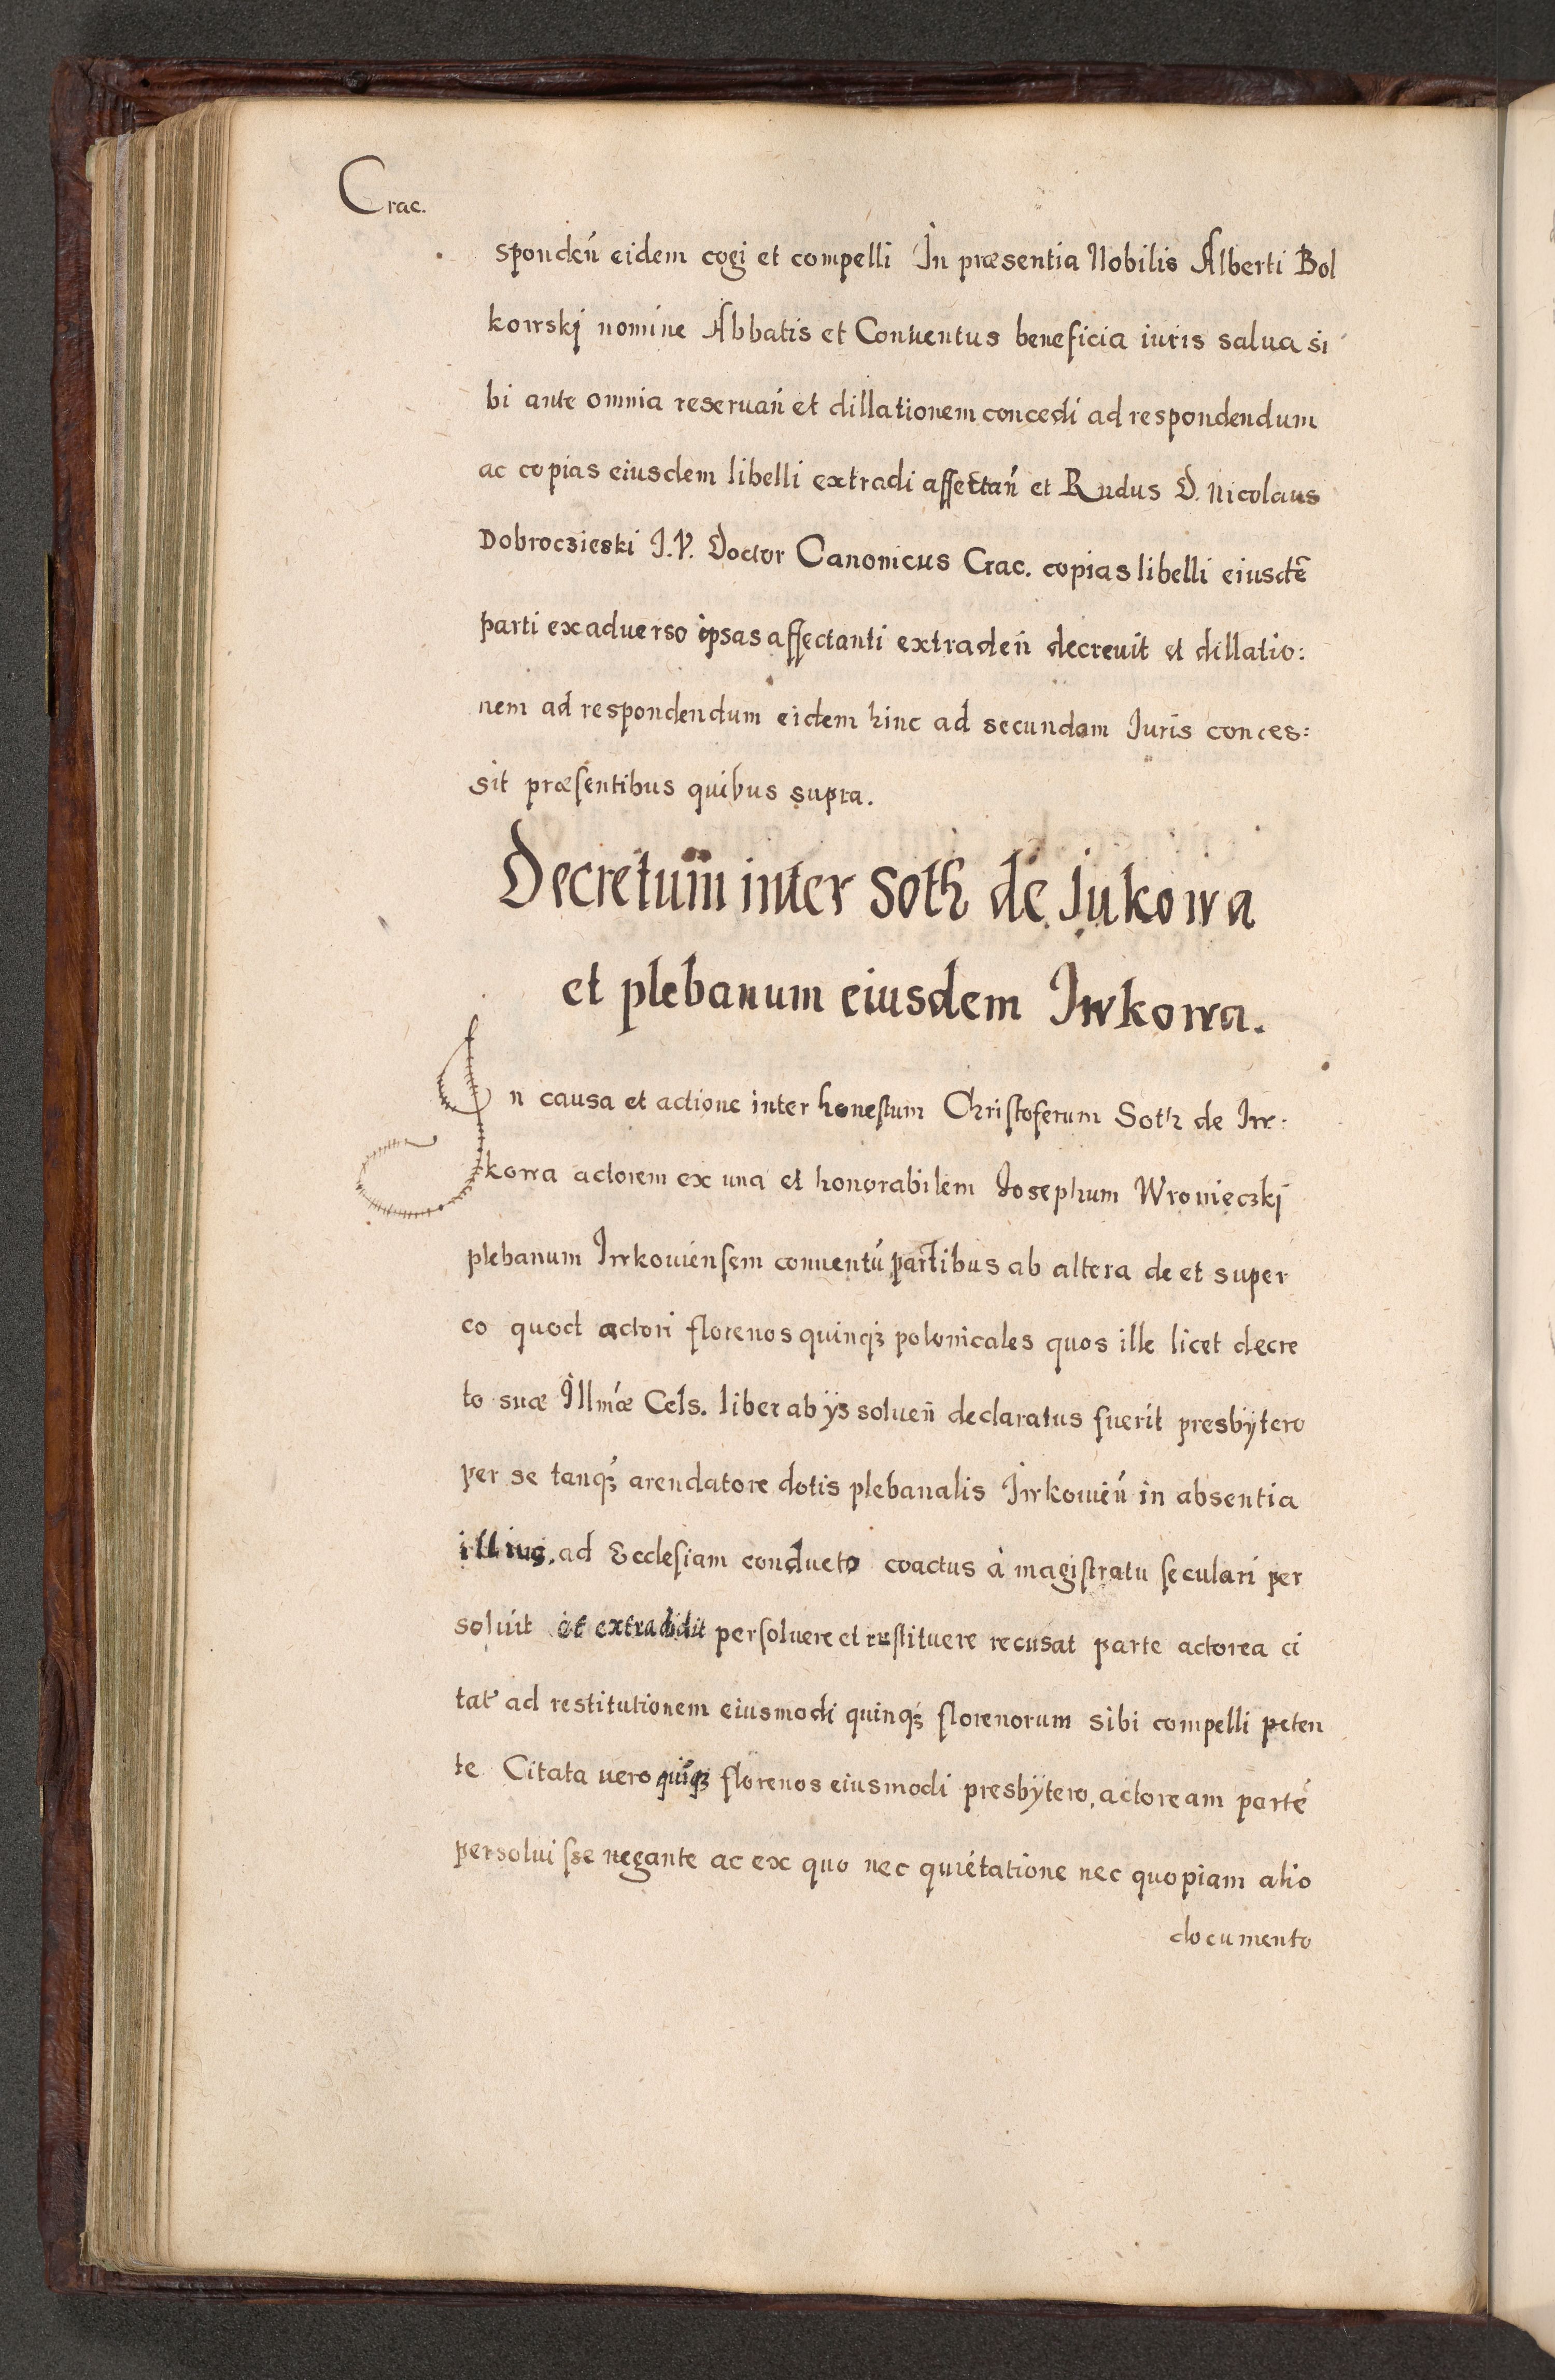 Crac.
sponden̄ eidem cogi et compelli In præsentia Nobilis Alberti Bol
kowskj nomine Abbatis et Conuentus beneficia iuris salua si
bi ante omnia reseruan̄ et dillationem concedi ad respondendum
ac copias eiusdem libelli extradi affectan̄ et Rndus D. Nicolaus
Dobroczieski J.V. Doctor Canonicus Crac. copias libelli eiusdē
parti ex aduerso ipsas affectanti extraden̄ decreuit et dillatio:
nem ad respondendum eidem hinc ad secundam Iuris conces:
sit præsentibus quibus supra.
Decretum inter Soth de Iukowa
et plebanum eiusdem Iwkowa.
In causa et actione inter honestum Christoferum Soth de Iw:
kowa actorem ex una et honorabilem Iosephum Wronięczkj
plebanum Iwkouiensem conuentū partibus ab altera de et super
eo quod actori florenos quinqȝ polonicales quos ille licet decre
to suæ Illmæ Cels. liber ab ijs soluen̄ declaratus fuerit presbÿtero
per se tanqȝ arendatore dotis plebanalis Iwkouien̄ in absentia
illius. ad Ecclesiam conducto coactus à magistratu seculari per
soluit et extradidit persoluere et restituere recusat parte actorea ci
tat' ad restitutionem eiusmodi quinqȝ florenorum sibi compelli peten
te Citata uero quīqȝ florenos eiusmodi presbÿtero, actoream partē
persoluisse negante ac ex quo nec quietatione nec quopiam alio
documento